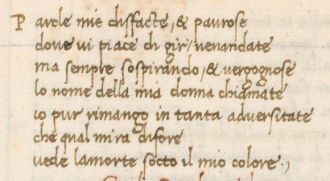 Parole mie disfacte, & paurose
dove vi piace di gir' v'enandate
ma sempre sospirando, & vergognose
lo nome della mia donna chiamate
io pur rimango in tanta adversitate
che qual mira difore
vede lamorte sotto il mio colore.,